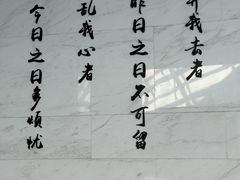 弃我去者
昨日之日不可留
乱我心者
今日之日多烦忧